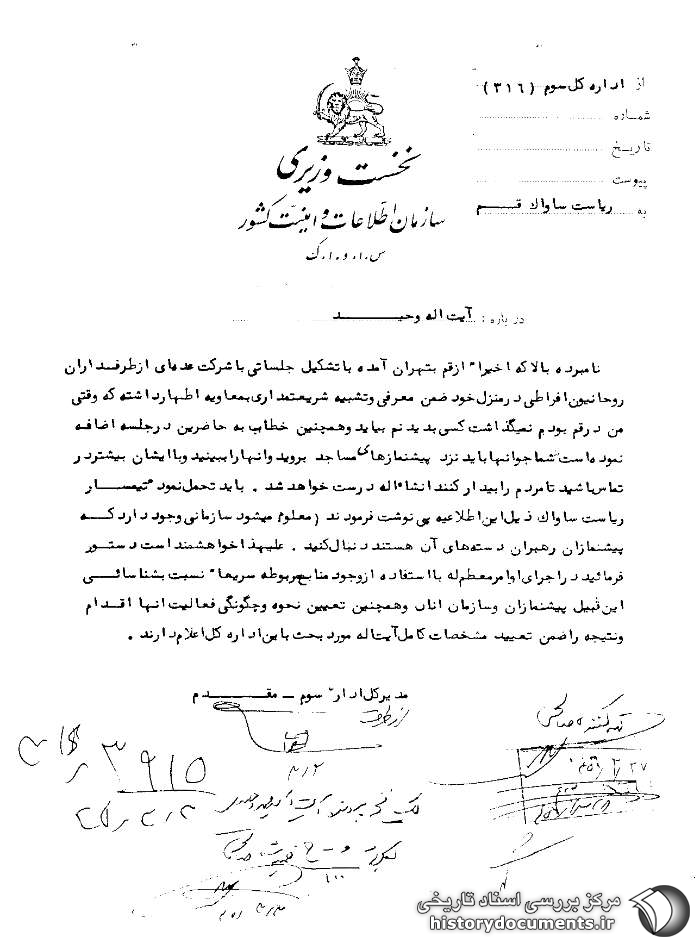 از اداره کل سوم (۳۱۶)
شماره
تاریخ
پیوست
به ریاست ساواك قــم
نخست وزیری
سازمان اطلاعات و امنیت کشور
س.ا.و.ا.ک
درباره : آیت اله وحیــد
نامبرده بالا که اخیراً از قم بتهران آمده با تشکیل جلساتی با شرکت عده‌ای از طرفداران
روحانیون افراطی در منزل خود ضمن معرفی و تشبیه شریعتمداری بمعاویه اظهار داشته که وقتی
من در قم بودم نمیگذاشت کسی بدیدنم بیاید و همچنین خطاب به حاضرین در جلسه اضافه
نموده است شما جوانها باید نزد پیشنمازهای مساجد بروید و آنها را ببینید و با ایشان بیشتر در
تماس باشید تا مردم را بیدار کنند انشاءاله درست خواهد شد . باید تحمل نمود تیمســار
ریاست ساواك ذیل این اطلاعیه پی نوشت فرمودند (معلوم میشود سازمانی وجود دارد کــه
پیشنمازان رهبران دسته‌های آن هستند دنبال کنید . علیهذا خواهشمند است دستور
فرمائید در اجرای اوامر معظم‌له با استفاده از وجود منابع مربوطه سریعاً نسبت بشناسائــی
این قبیل پیشنمازان و سازمان آنان و همچنین تعیین نحوه و چگونگی فعالیت آنها اقدام
و نتیجه را ضمن تعیید مشخصات کامل آیت‌اله مورد بحث باین اداره کل اعلام دارند .
مدیر کل اداره سوم ــ مقــدم
از طرف
تهیه کننده صالحی
۳۹۱۵
مرکز بررسی اسناد تاریخی
historydocuments.ir